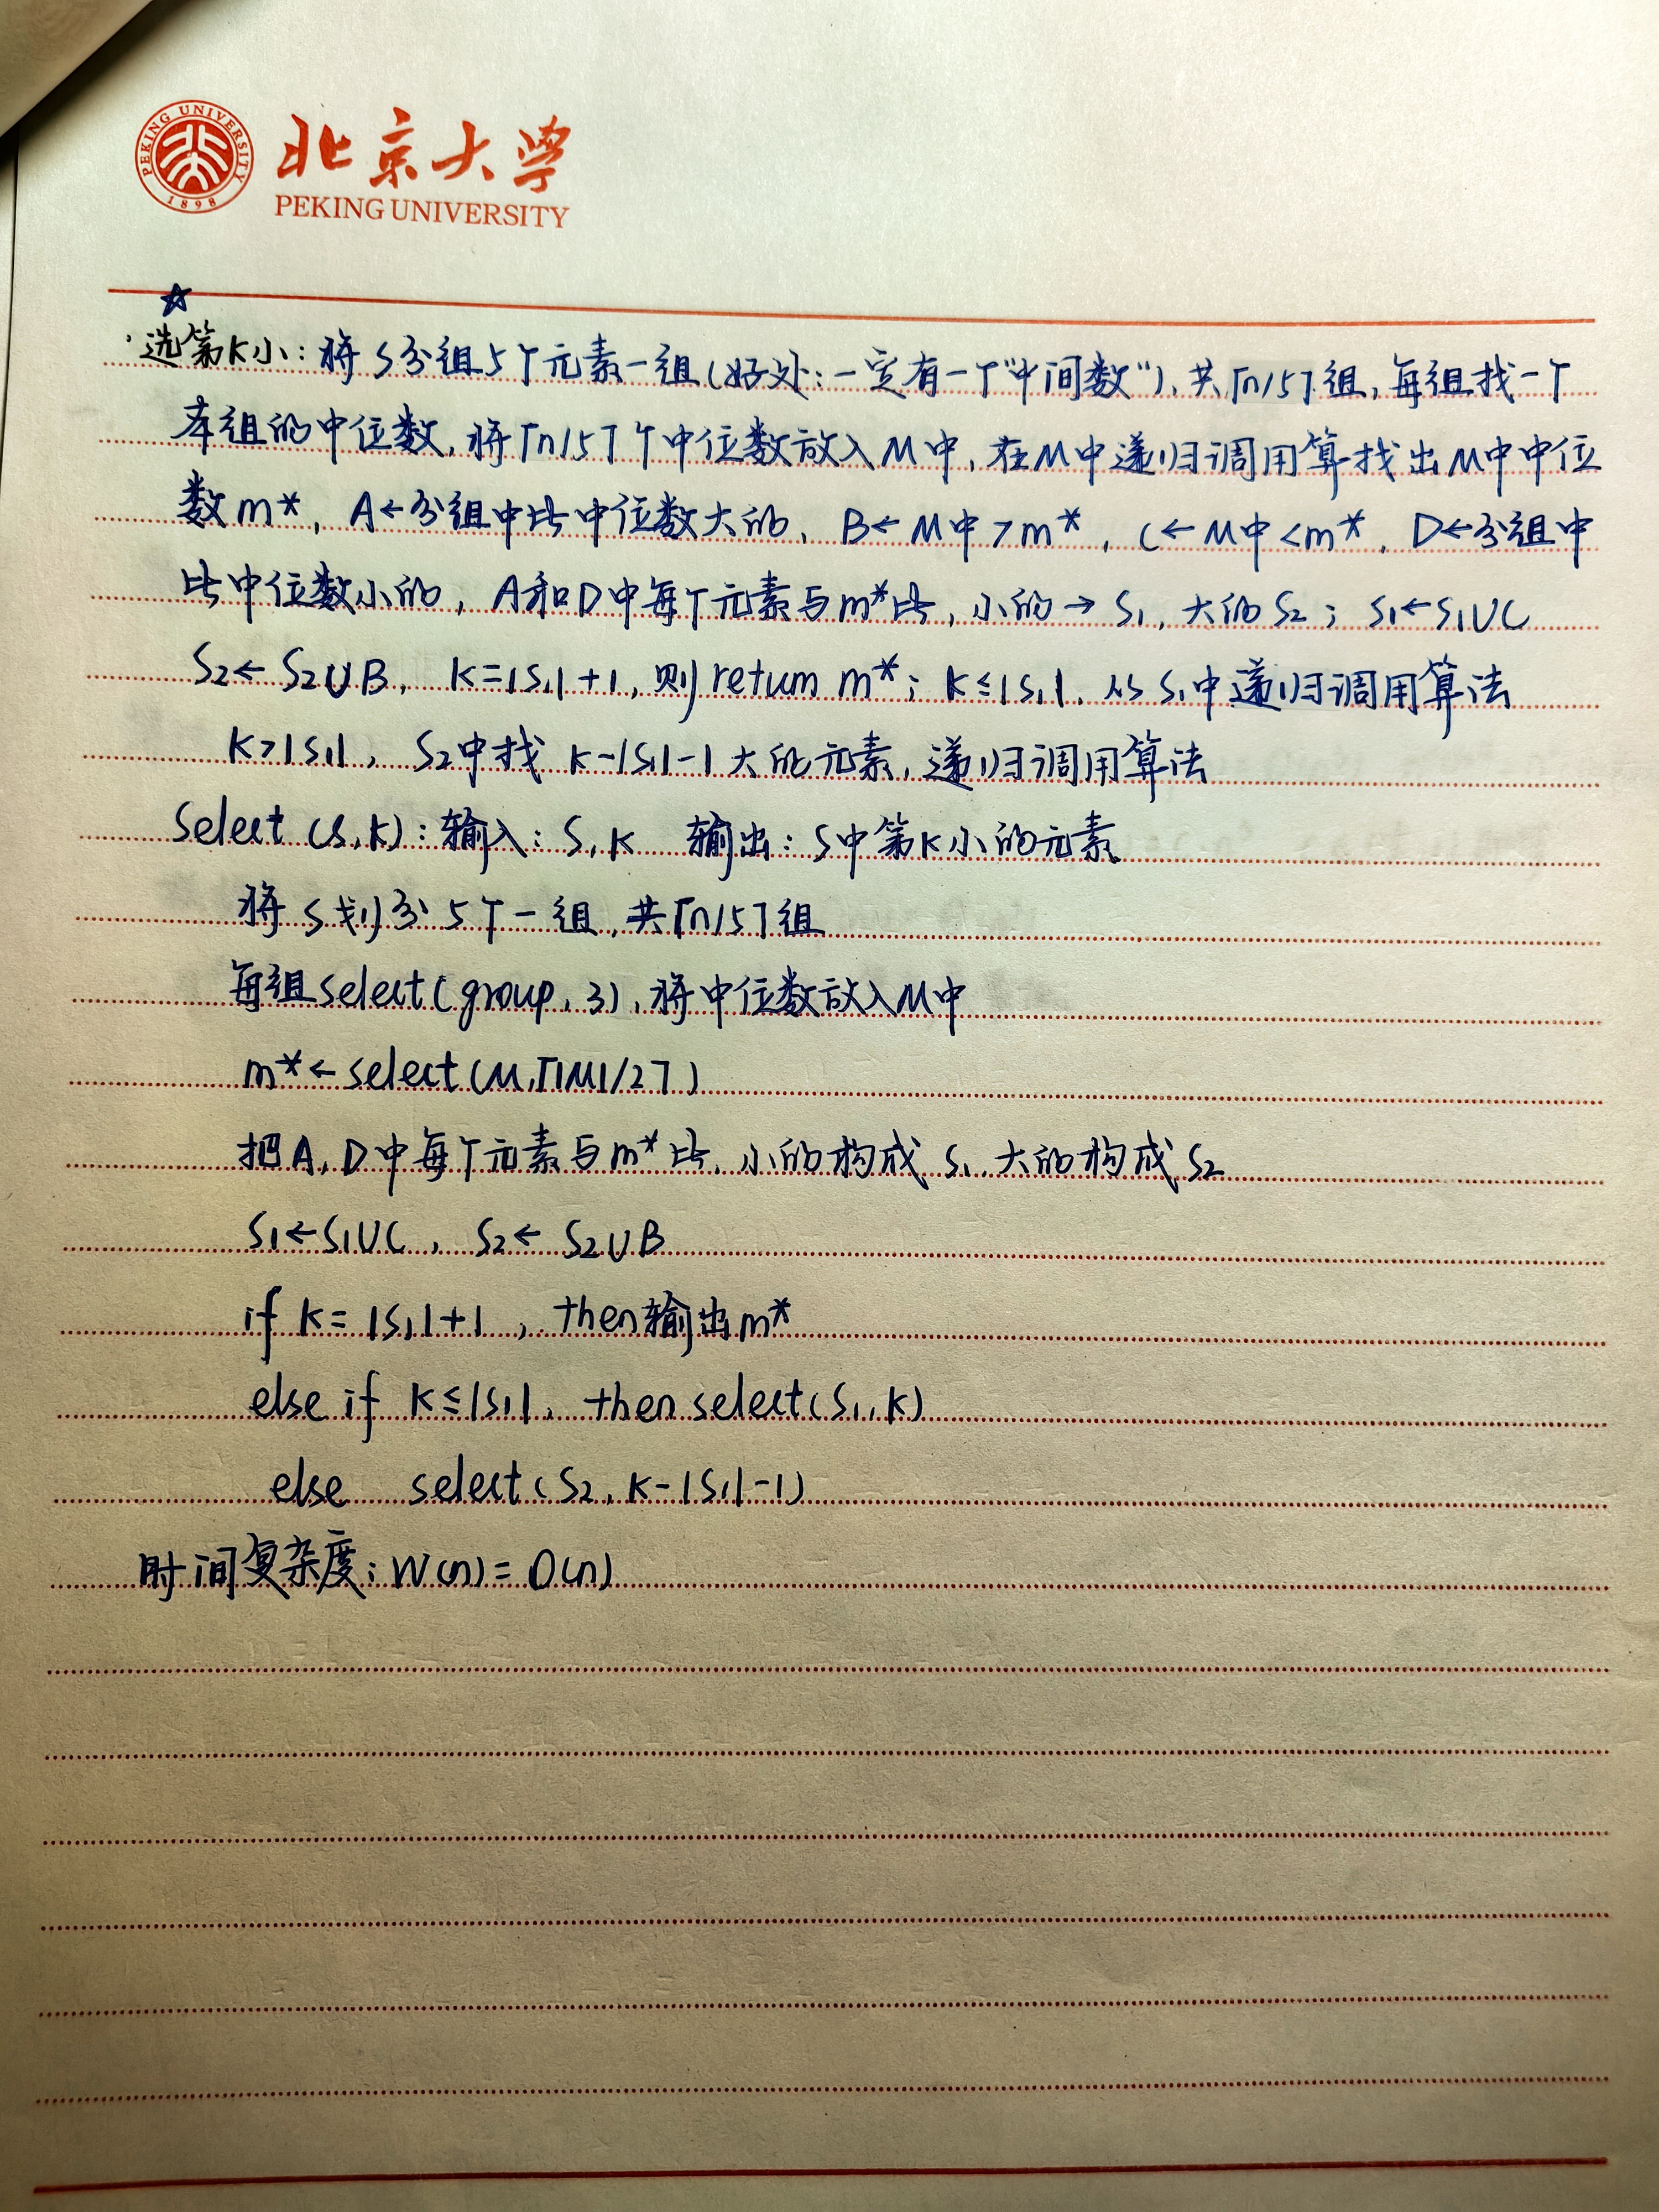 PEKING UNIVERSITY 1898
北京大学
PEKING UNIVERSITY
☆
·选第K小：将S分组5个元素一组(好处：一定有一个"中间数")，共⌈n/5⌉组，每组找一个
本组的中位数，将⌈n/5⌉个中位数放入M中，在M中递归调用算找出M中中位
数m*，A←分组中比中位数大的，B←M中>m*，C←M中<m*，D←分组中
比中位数小的，A和D中每个元素与m*比，小的→S₁，大的S₂；S₁←S₁∪C
S₂←S₂∪B，K=|S₁|+1，则return m*；K≤|S₁|，从S₁中递归调用算法
K>|S₁|，S₂中找K-|S₁|-1大的元素，递归调用算法
Select(S,K)：输入：S,K 输出：S中第K小的元素
将S划分5个一组，共⌈n/5⌉组
每组select(group,3)，将中位数放入M中
m*←select(M,⌈|M|/2⌉)
把A,D中每个元素与m*比，小的构成S₁，大的构成S₂
S₁←S₁∪C，S₂←S₂∪B
if K=|S₁|+1，then输出m*
else if K≤|S₁|，then select(S₁,K)
else select(S₂,K-|S₁|-1)
时间复杂度：W(n)=O(n)